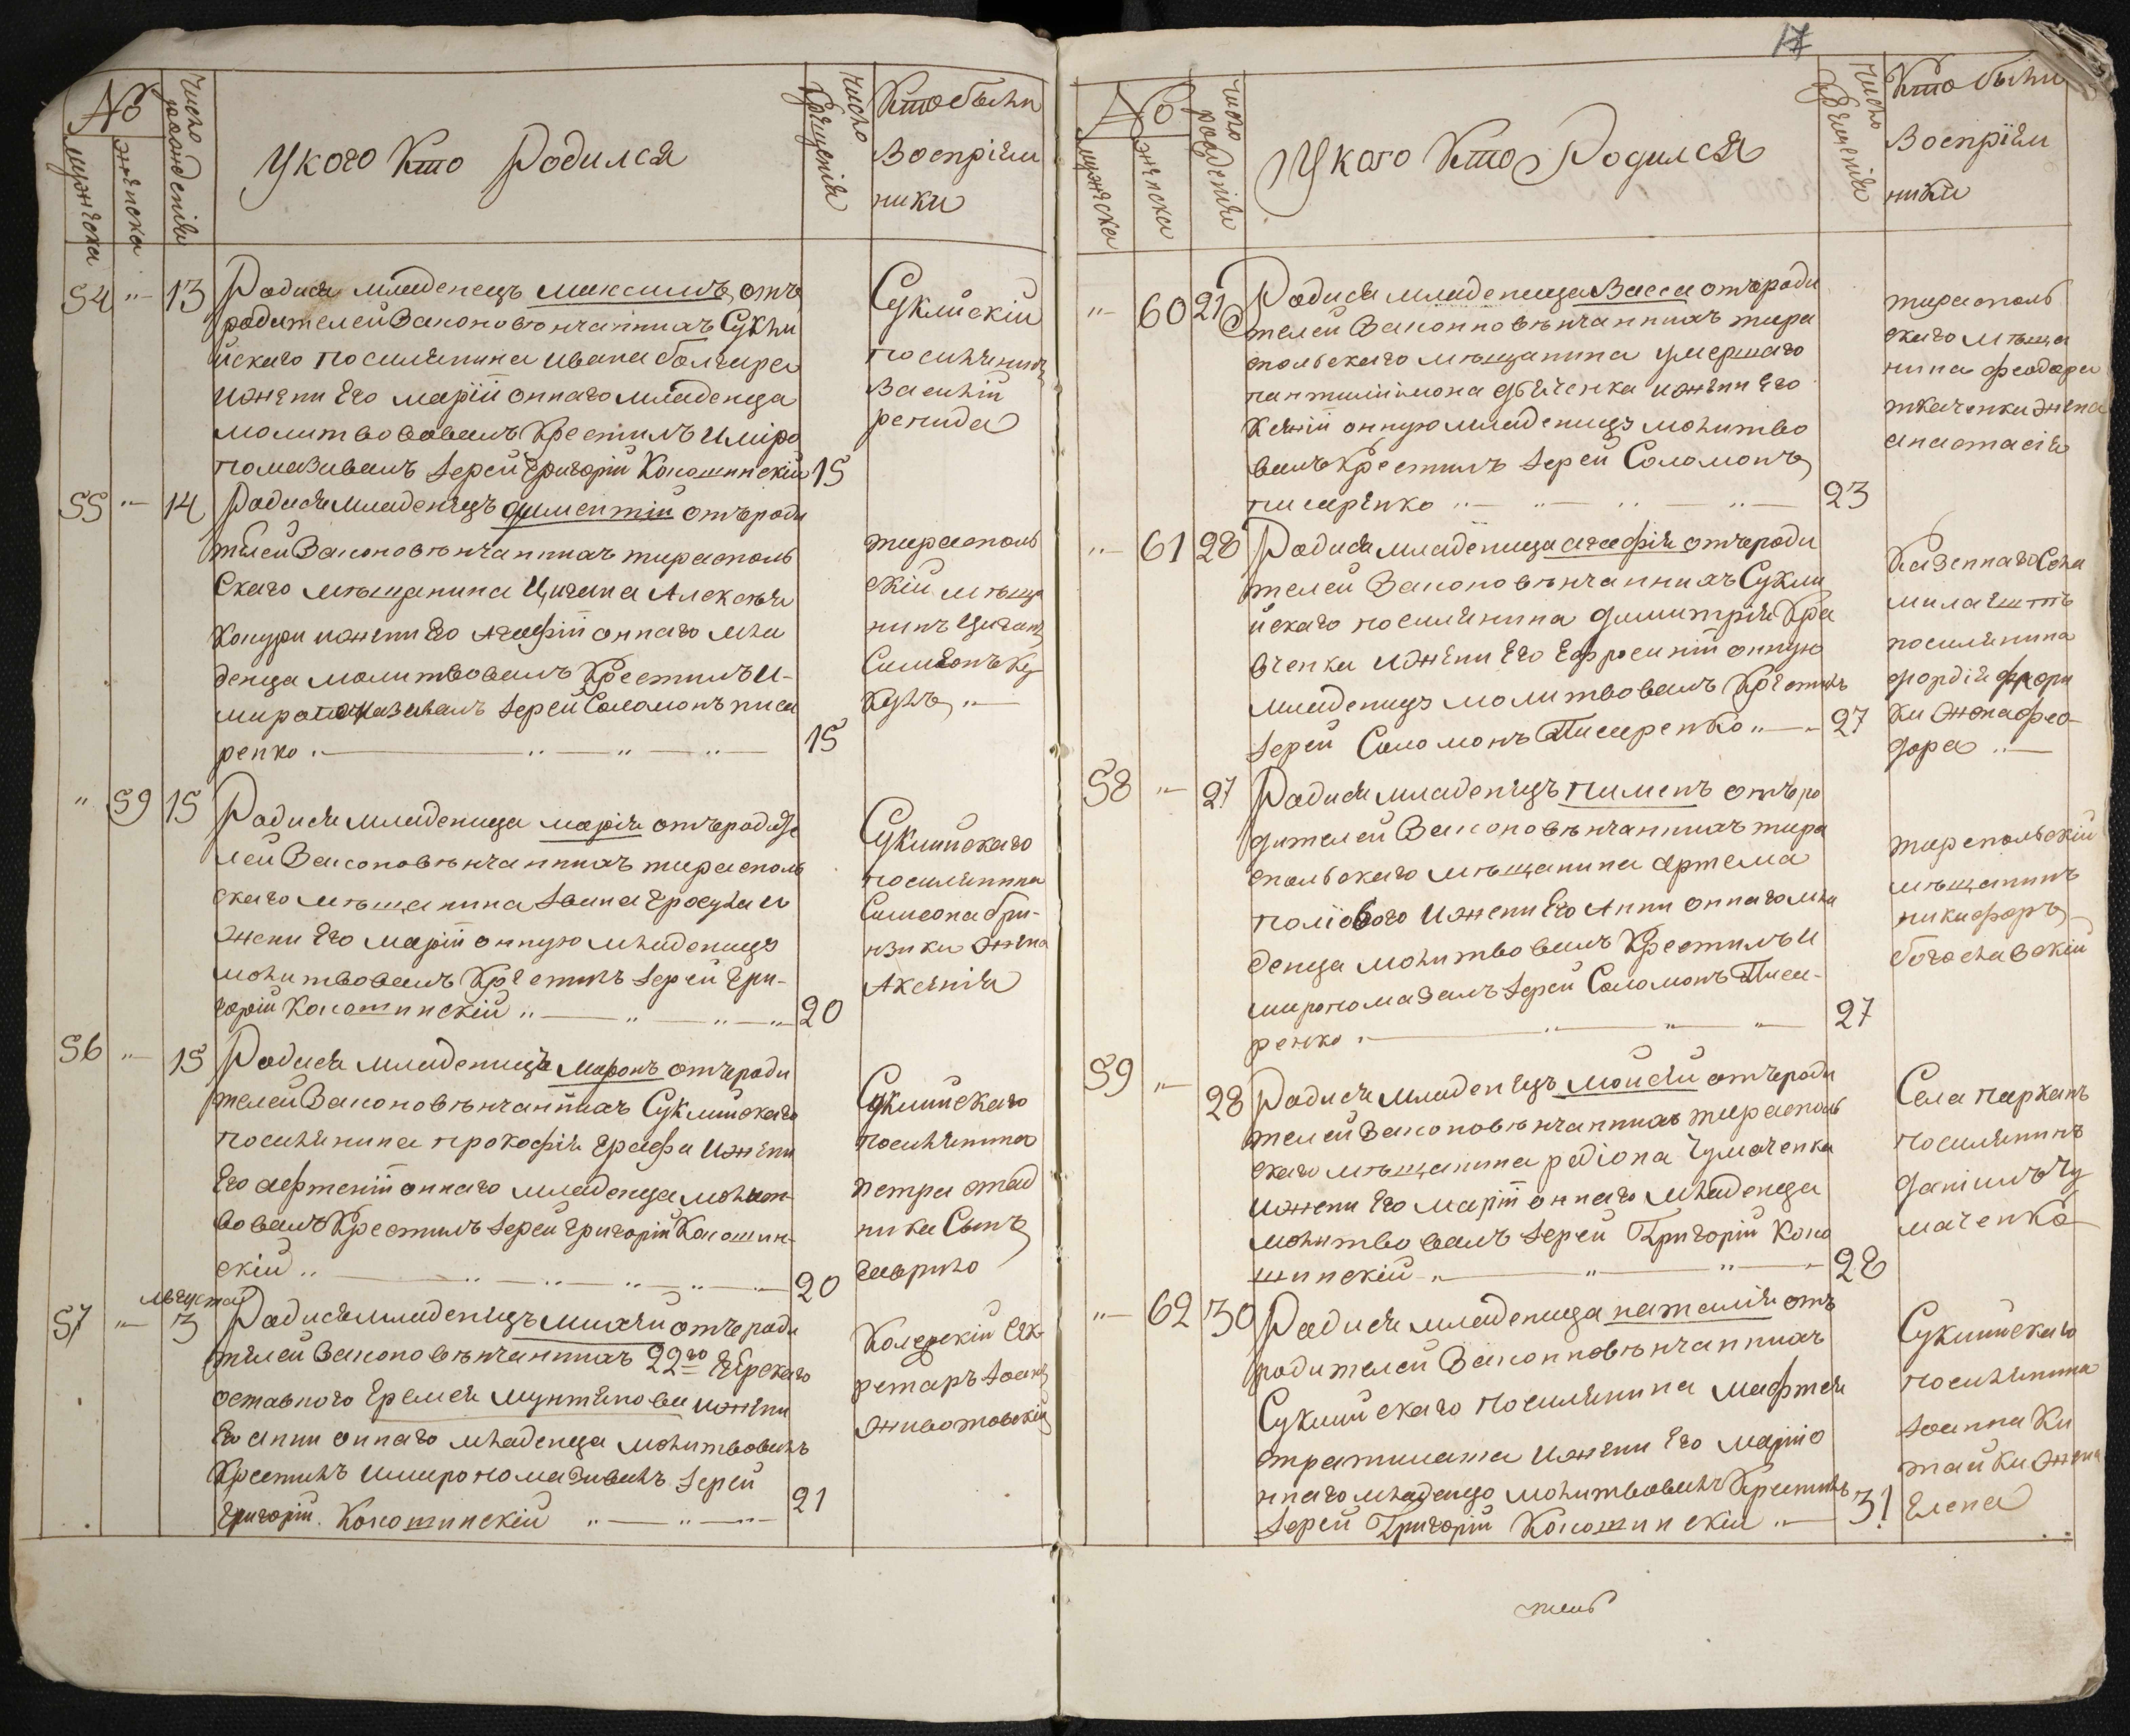 №
мужеска
женска
Число рождения
У кого Кто Родился
Число Крещения
Кто были
Воспрiем
ники
54 " 13
Родися младенецъ максимъ отъ
родителей Законовѣнчанныхъ Сукли
йскаго поселянина ивана болгара
ижены Его марiи оннаго младенца
молитвововалъ Крестилъ Имiро
помазывалъ Iерей Григорiй Коношинскiй 15
Суклийскiй
поселянинъ
Василiй
репида
55 " 14
Родися младенецъ дiментiй отъ роди
телей Законовѣнчанныхъ тирасполь
Скаго мѣщанина Цигана Алексѣя
Кокури ижены Его Агафiи оннаго мла
денца молитвовалъ Крестилъ И-
миропомазывалъ Iерей Соломонъ писа
ренко 15
тирасполь
скiй мѣща
нинъ Циганъ
Симеонъ Ку
Куль
" 59 15
Родися младеница марiя отъ родите
лей Законовѣнчанныхъ тирасполь
скаго мѣщанина Iвана Гросула и
жены Его марiи онную младеницу
молитвовалъ Крестилъ Iерей Гри-
горiй Коношинскiй 20
Суклийскаго
поселянина
Симеона бри-
нзики жена
Аксенiя
56 " 15
Родися младенецъ маронъ отъ роди
телей Законовѣнчанныхъ Суклийскаго
поселянина прокофiя Графа Ижены
Его афтенiи оннаго младенца молит-
вовалъ Крестилъ Iерей Григорiй Коношин-
скiй 20
Суклийскаго
поселянина
петра стад
ника Сынъ
Гаврило
Августа
57 " 3
Родися младенецъ михей отъ роди
телей Законовѣнчанныхъ 22го Егерскаго
оставного Еремея мунтянова ижены
Его анни оннаго младенца молитвовалъ
Крестилъ Имиропомазивалъ Iерей
Григорiй Коношинскiй 21
Колезскiй Сек-
ретаръ Iоанъ
животовскiй
17
№
мужеска
женска
Число рождения
У кого Кто Родился
Число Крещения
Кто были
Воспрiем
ники
" 60 21
Родися младеница Васса отъ роди
телей Законновѣнчанныхъ тира
спольскаго мѣщанина умершаго
пантилiимона дяченка ижены Его
Ксенiи онную младеницу молитво
валъ Крестилъ Iерей Соломонъ
писаренко 23
тирасполь
скаго мѣща
нина феодора
ткаченки жена
анастасiя
" 61 28
Родися младеница агафiя отъ роди
телей Законовѣнчанныхъ Сукли
йскаго поселянина димитрiя Кра
вченки Ижены Его Ефросинiи онную
младеницу молитвовалъ Крестилъ
Iерей Соломонъ Писаренко 27
Казеннаго Села
милаештъ
поселянина
фордiя
ки жона фео-
дора
58 " 27
Родися младенецъ пименъ отъ ро
дителей Законовѣнчанныхъ тира
спольскаго мѣщанина артема
полiового Ижены Его Анни оннаго мла
денца молитвовалъ Крестилъ И
миропомазалъ Iерей Соломонъ Писа-
ренко 27
тираспольскiй
мѣщанинъ
никифоръ
богославскiй
59 " 28
Родися младенецъ моисей отъ роди
телей Законовѣнчанныхъ тирасполь
скаго мѣщанина родiона Чумаченка
ижены Его марiи оннаго младенца
молитвовалъ Iерей Григорiй Коно
шинскiй 28
Села парканъ
поселянинъ
данiилъ Чу
маченко
" 62 30
Родися младеница наталiя отъ
родителей Законновѣнчанныхъ
Суклийскаго поселянина мафтея
стратилата ижены Его марiи о
ннаго младенцо молитвовалъ Крестилъ
Iерей Григорiй Коношинскiй 31
Суклийскаго
поселянина
Iоанна Ки
тайки жена
Елена